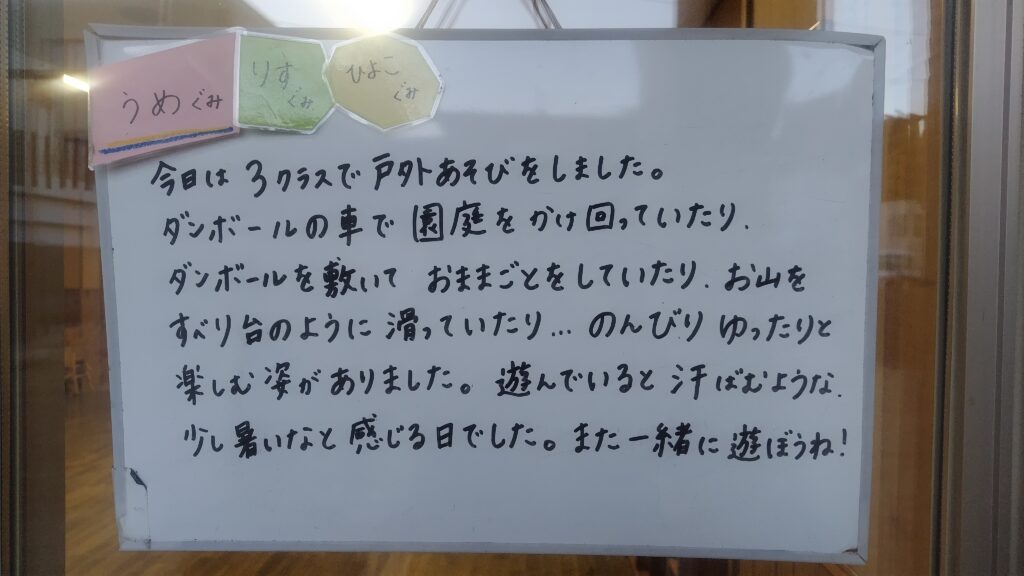 うめぐみ
りすぐみ
ひよこぐみ
今日は 3クラスで 戸外あそびをしました。
ダンボールの車で 園庭をかけ回っていたり、
ダンボールを敷いて おままごとをしていたり、お山を
すべり台のように滑っていたり…のんびりゆったりと
楽しむ姿がありました。遊んでいると汗ばむような、
少し暑いなと感じる日でした。また一緒に遊ぼうね!